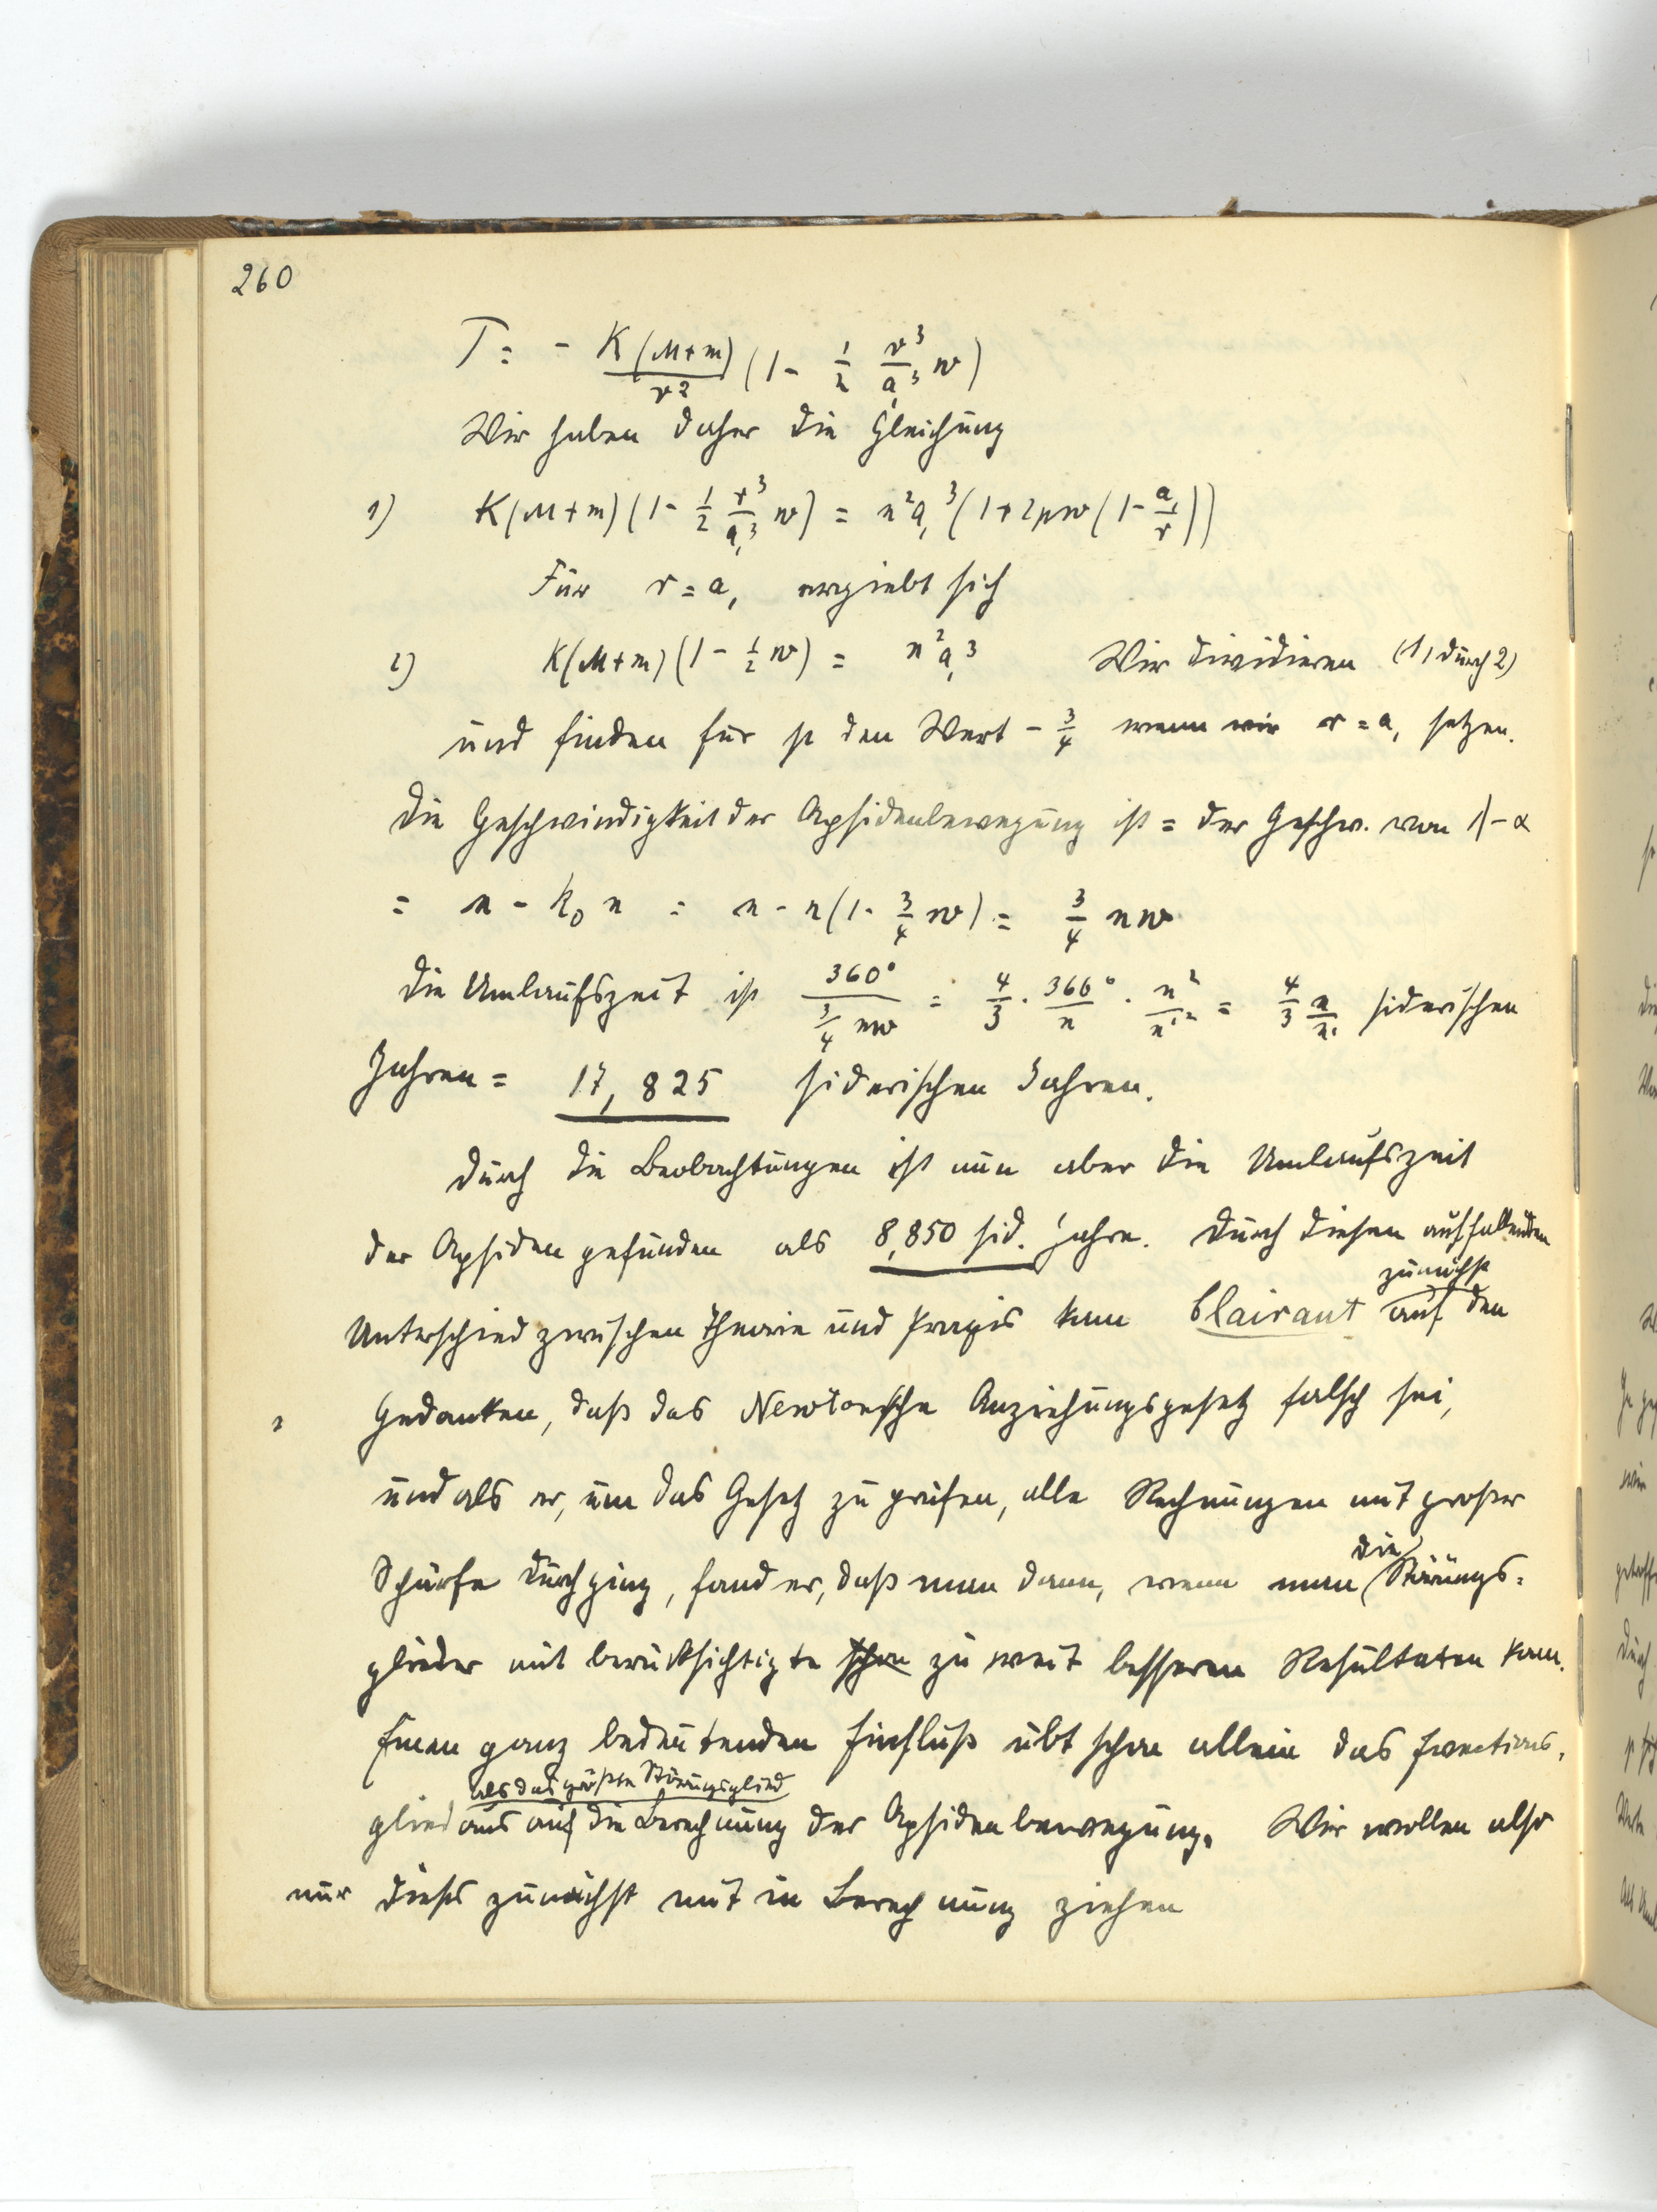 260
T = - K(M+m)/r² (1 - 1/2 r³/a,³ w)
Wir haben daher die Gleichung
1) K(M+m)(1 - 1/2 r³/a,³ w) = n²a,³(1+2pw(1 - a,/r))
Für r = a, ergiebt sich
2) K(M+m)(1 - 1/2 w) = n²a,³ Wir dividieren (1) durch 2)
und finden für p den Wert - 3/4 wenn wir r = a, setzen.
Die Geschwindigkeit der Apsidenbewegung ist = der Geschw. von λ - α
= n - k₀ n = n - n(1 - 3/4 w) = 3/4 nw
Die Umlaufszeit ist 360°/(3/4 nw) = 4/3 · 360°/n · n²/n'² = 4/3 n/n' siderischen
Jahren = 17,825 siderischen Jahren.
Durch die Beobachtungen ist nun aber die Umlaufszeit
der Apsiden gefunden als 8,850 sid. Jahre. Durch diesen auffallenden
Unterschied zwischen Theorie und Praxis kam Clairaut zunächst auf den
Gedanken, daß das Newtonsche Anziehungsgesetz falsch sei,
und als er, um das Gesetz zu prüfen, alle Rechnungen mit großer
Schärfe durchging, fand er, daß man dann, wenn man die Störungs=
glieder mit berücksichtigte schon zu weit besseren Resultaten kam.
Einen ganz bedeutenden Einfluß übt schon allein das Evections=
glied als das größte Störungsglied aus auf die Berechnung der Apsidenbewegung. Wir wollen also
nur dieses zunächst mit in Berechnung ziehen